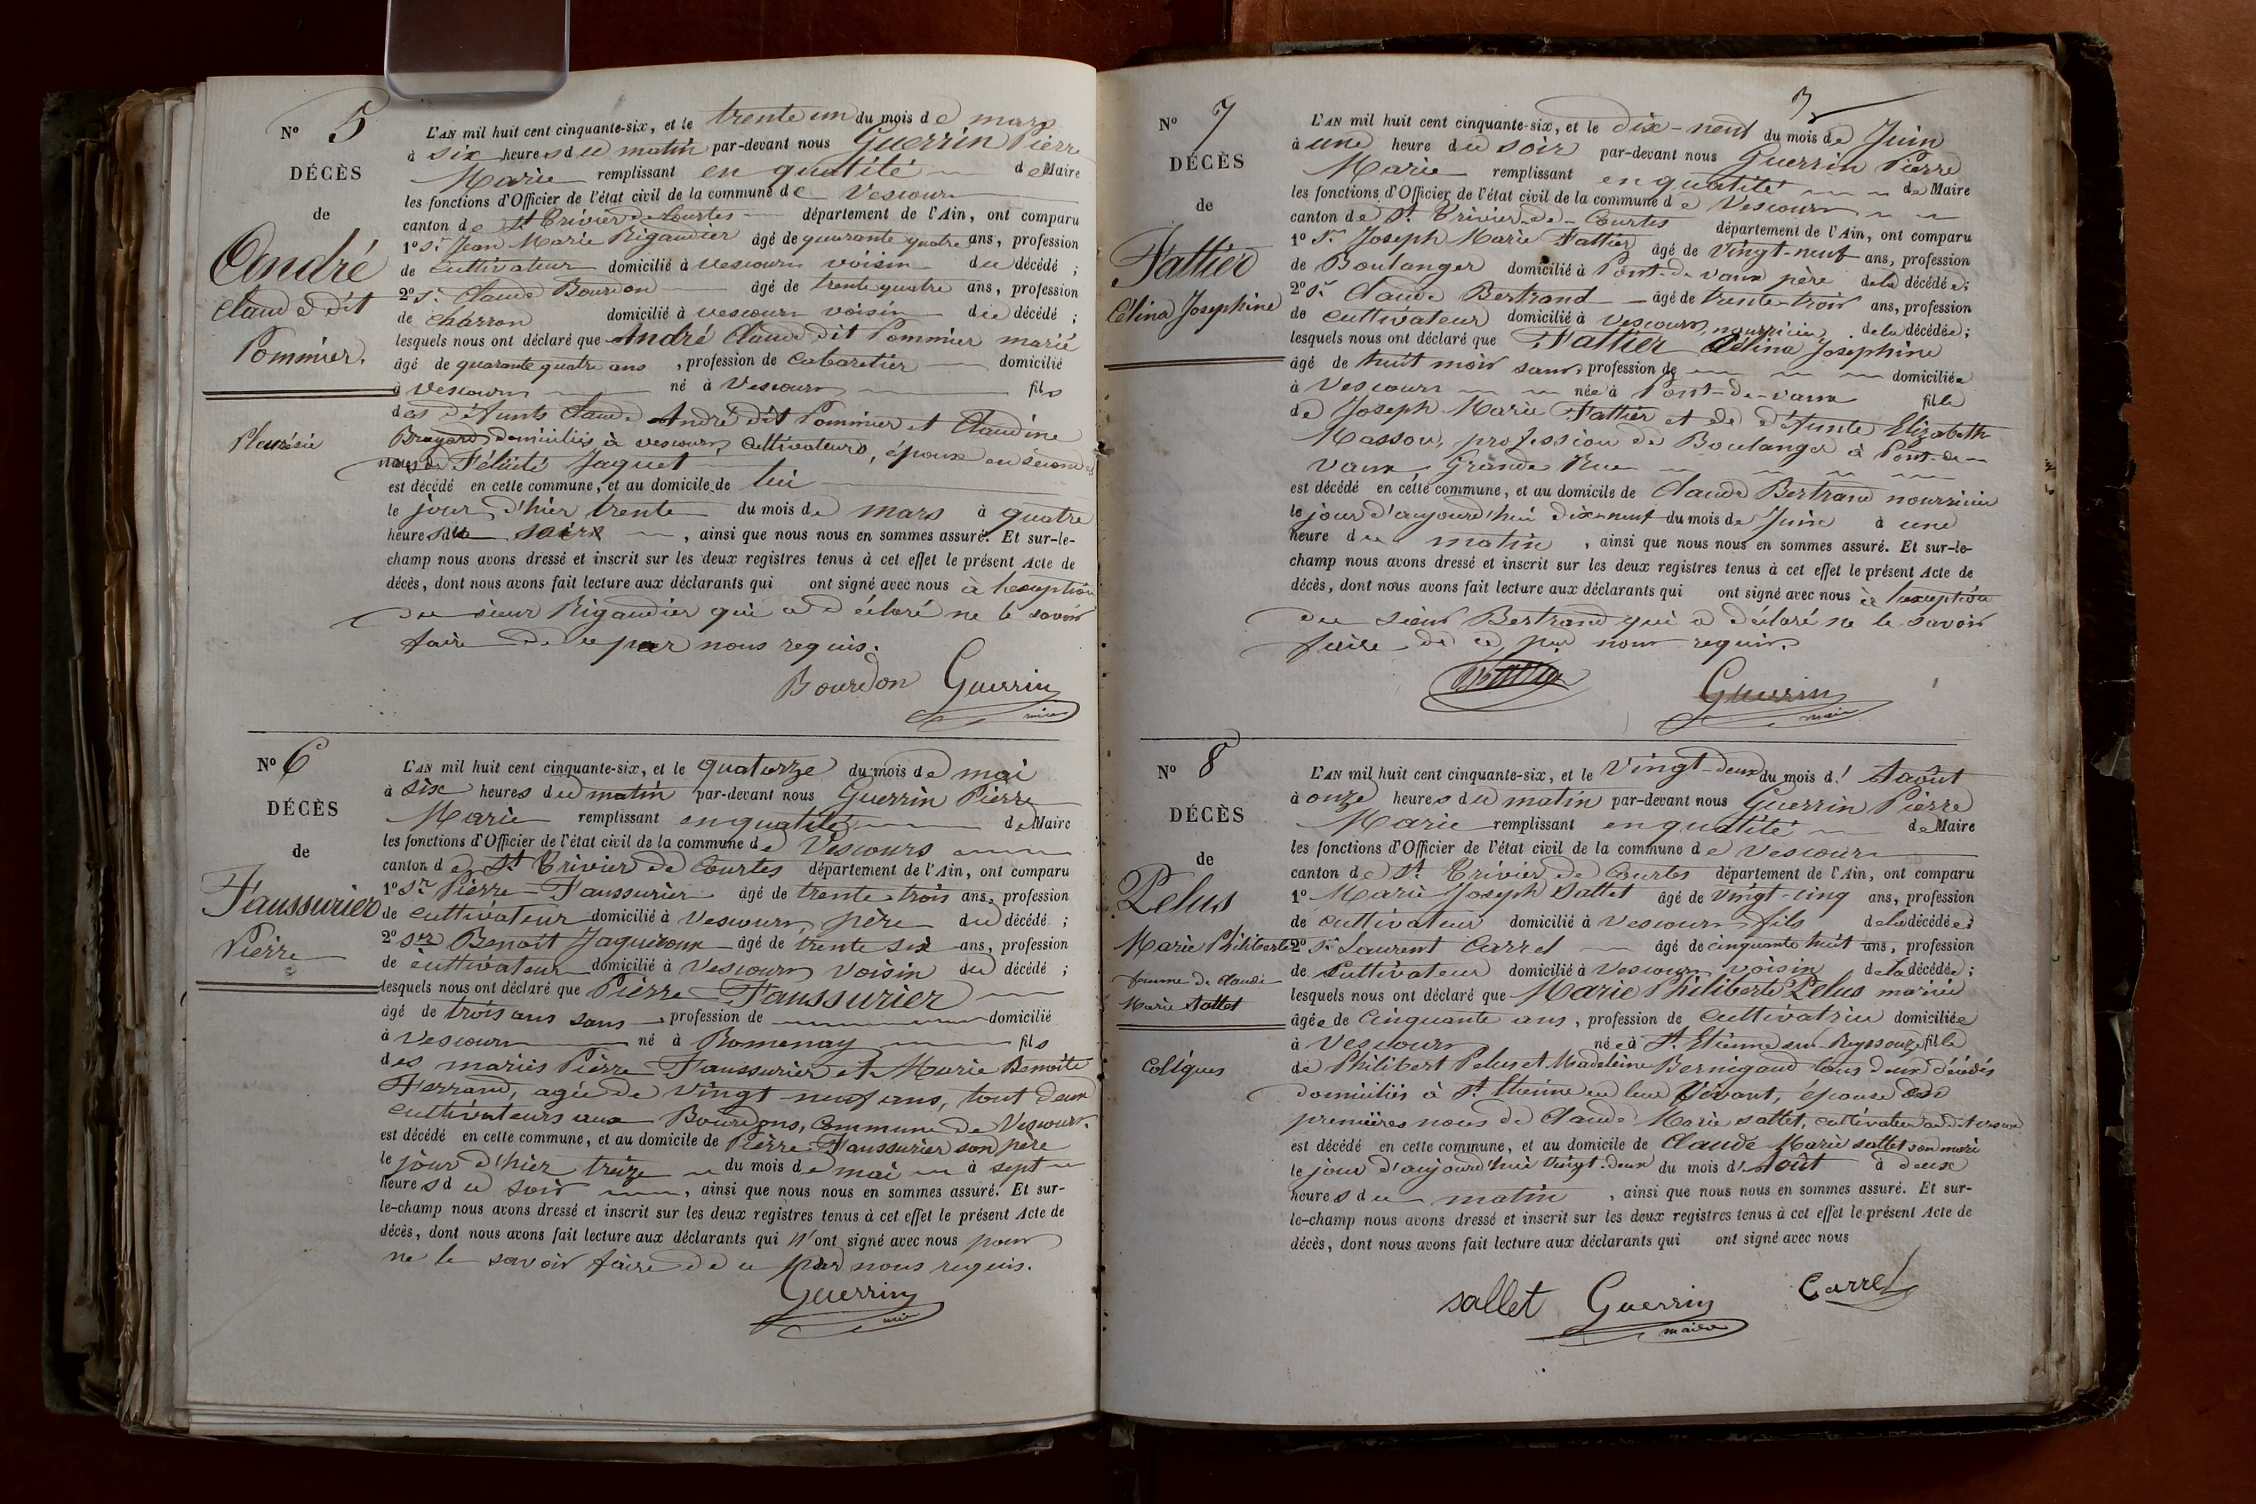 N° 5
DÉCÈS
de
André
Claude dit
Pommier.
Pleurésie
L'AN mil huit cent cinquante-six, et le trente un du mois de mars
à six heures du matin par-devant nous Guerrin Pierre
Marie remplissant en qualité de Maire
les fonctions d'Officier de l'état civil de la commune de Vescours
canton de St Trivier de Courtes département de l'Ain, ont comparu
1° Sr Jean Marie Rigaudier âgé de quarante quatre ans, profession
de cultivateur domicilié à Vescours voisin du décédé ;
2° Sr Claude Bourdon âgé de trente quatre ans, profession
de charron domicilié à vescours voisin du décédé ;
lesquels nous ont déclaré que André Claude dit Pommier marié
âgé de quarante quatre ans, profession de cabaretier domicilié
à Vescours né à Vescours fils
des défunts Claude André dit Pommier et Claudine
Brayard domiciliés à vescours, cultivateurs, époux en secondes
noces de Félicité Jaquet
est décédé en cette commune, et au domicile de lui
le jour d'hier trente du mois de mars à quatre
heures du soir, ainsi que nous nous en sommes assuré. Et sur-le-
champ nous avons dressé et inscrit sur les deux registres tenus à cet effet le présent Acte de
décès, dont nous avons fait lecture aux déclarants qui ont signé avec nous à l'exception
du sieur Rigaudier qui a déclaré ne le savoir
faire de ce par nous requis.
Bourdon Guerrin
maire
N° 6
DÉCÈS
de
Faussurier
Pierre
L'AN mil huit cent cinquante-six, et le quatorze du mois de mai
à six heures du matin par-devant nous Guerrin Pierre
Marie remplissant en qualité de Maire
les fonctions d'Officier de l'état civil de la commune de Vescours
canton de St Trivier de Courtes département de l'Ain, ont comparu
1° Sr Pierre Faussurier âgé de trente trois ans, profession
de cultivateur domicilié à Vescours, père du décédé ;
2° Sr Benoît Jaquiroux âgé de trente six ans, profession
de cultivateur domicilié à Vescours voisin du décédé ;
lesquels nous ont déclaré que Pierre Faussurier
âgé de trois ans sans profession de domicilié
à Vescours né à Romenay fils
des mariés Pierre Faussurier et Marie Benoîte
Ferrand, agée de vingt neuf ans, tout deux
cultivateurs aux Bourdons, Commune de Vescours.
est décédé en cette commune, et au domicile de Pierre Faussurier son père
le jour d'hier treize du mois de mai à sept
heures du soir, ainsi que nous nous en sommes assuré. Et sur-
le-champ nous avons dressé et inscrit sur les deux registres tenus à cet effet le présent Acte de
décès, dont nous avons fait lecture aux déclarants qui n'ont signé avec nous pour
ne le savoir faire de ce par nous requis.
Guerrin
maire
3
N° 7
DÉCÈS
de
Fattier
Célina Josephine
L'AN mil huit cent cinquante-six, et le dix-neuf du mois de Juin
à une heure du soir par-devant nous Guerrin Pierre
Marie remplissant en qualité de Maire
les fonctions d'Officier de l'état civil de la commune de Vescours
canton de St Trivier-de-Courtes département de l'Ain, ont comparu
1° Sr Joseph Marie Fattier âgé de vingt-neuf ans, profession
de Boulanger domicilié à Pont-de-vaux père de la décédée;
2° Sr Claude Bertrand âgé de trente-trois ans, profession
de cultivateur domicilié à Vescours, nourricier de la décédée;
lesquels nous ont déclaré que Fattier Célina Josephine
âgé de huit mois sans profession de domiciliée
à Vescours née à Pont-de-vaux fille
de Joseph Marie Fattier et de défunte Elizabeth
Masson, profession de Boulanger à Pont-de-
vaux, Grande Rue
est décédé en cette commune, et au domicile de Claude Bertrand nourricier
le jour d'aujourd'hui dix-neuf du mois de Juin à une
heure du matin, ainsi que nous nous en sommes assuré. Et sur-le-
champ nous avons dressé et inscrit sur les deux registres tenus à cet effet le présent Acte de
décès, dont nous avons fait lecture aux déclarants qui ont signé avec nous à l'exception
du sieur Bertrand qui a déclaré ne le savoir
faire de ce par nous requis.
Guerrin
maire
N° 8
DÉCÈS
de
Pelus
Marie Philiberte
femme de Claude
Marie Sallet
Coliques
L'AN mil huit cent cinquante-six, et le vingt-deux du mois d' Août
à onze heures du matin par-devant nous Guerrin Pierre
Marie remplissant en qualité de Maire
les fonctions d'Officier de l'état civil de la commune de Vescours
canton de St Trivier de Courtes département de l'Ain, ont comparu
1° Marie Joseph Sallet âgé de vingt-cinq ans, profession
de cultivateur domicilié à Vescours fils de la décédée;
2° Sr Laurent Carrel âgé de cinquante huit ans, profession
de Cultivateur domicilié à Vescours voisin de la décédée;
lesquels nous ont déclaré que Marie Philiberte Pelus mariée
âgée de cinquante ans, profession de cultivatrice domiciliée
à Vescours née à St Etienne sur Reyssouze fille
de Philibert Pelus et Madeleine Bernigaud tous deux décédés
domiciliés à St Etienne en leur vivant, épouse en
premières noces de Claude Marie Sallet, cultivateur au dit Vescours
est décédé en cette commune, et au domicile de Claude Marie Sallet son mari
le jour d'aujourd'hui vingt-deux du mois d'Août à deux
heures du matin, ainsi que nous nous en sommes assuré. Et sur-
le-champ nous avons dressé et inscrit sur les deux registres tenus à cet effet le présent Acte de
décès, dont nous avons fait lecture aux déclarants qui ont signé avec nous
sallet Guerrin Carrel
maire